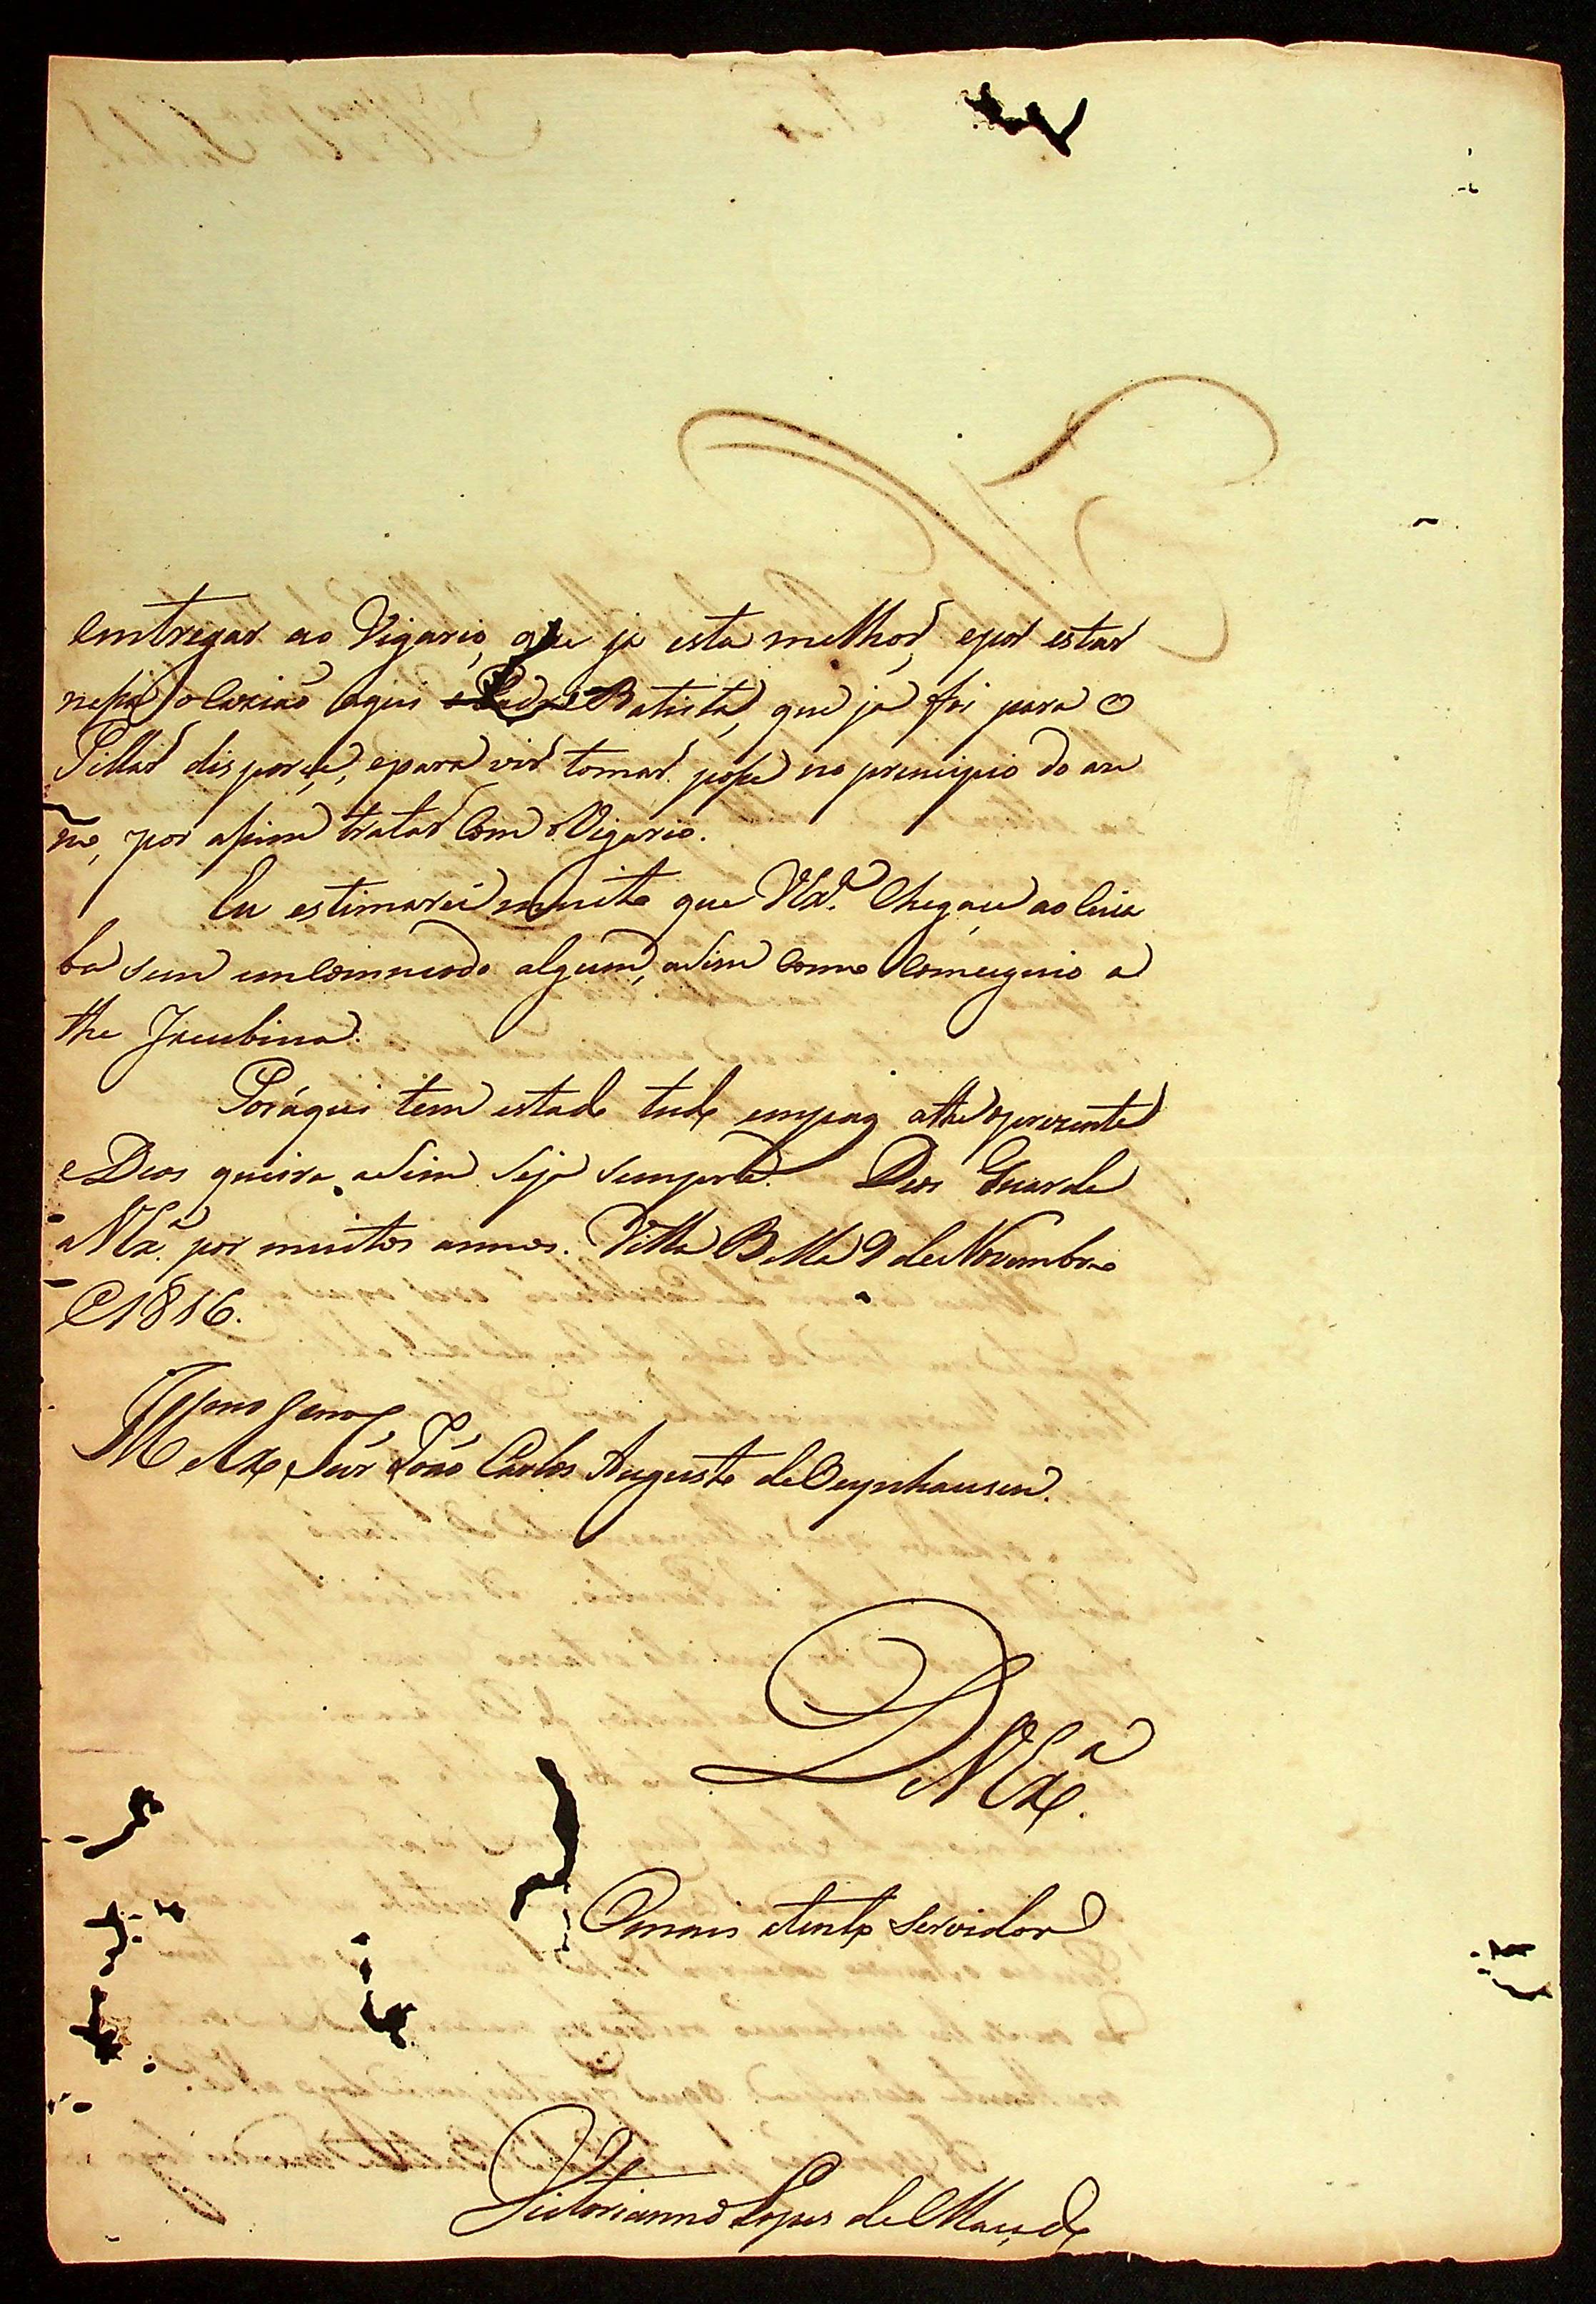 emtregar ao Vigario, que ja esta melhor, epor estar
nesta ocazião aqui o Padre Batista, que ja foi para o
Pillar disporse, epara vir tomar pose no principio do an
no, por asim tratar Com oVigario.
Eu estimarei muito que VEx.ª Chegase ao Cuia
ba sem emcommodo algum, asim como Comcigurio a
the Jacubina.
Poráqui tem estado tudo empaz athe oprezente
eDeos queira asim seja sempre. Deos Guarde
aVEx.ª por muitos annos. Villa Bella 9 deNovembro
e1816.
Illmo Exmo
Sñr João Carlos Augusto deOeynhausen.
DeVEx.ª
Omais atento Servidor
Victorianno Lopes deMacedo